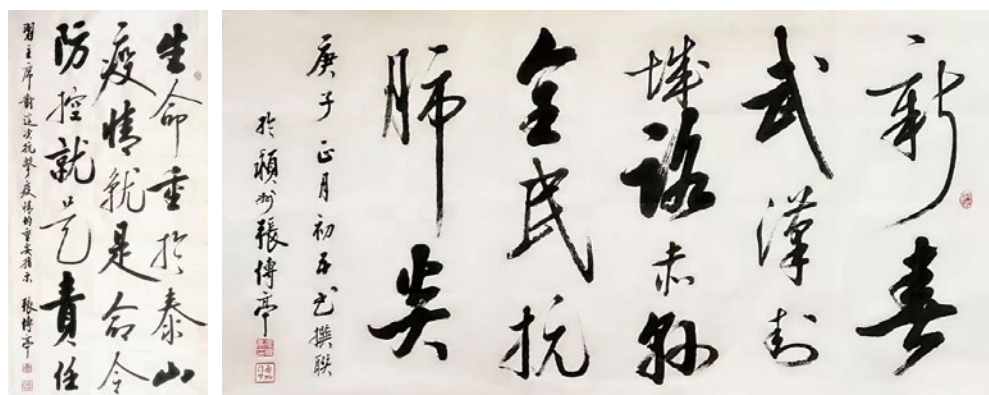 生命重於泰山
疫情就是命令
防控就是責任
習主席對這次抗擊疫情的重要指示 張傳亭
新春
武漢封
城路赤縣
全民抗
肺炎
庚子正月初五書撰聯
於穎州張傳亭